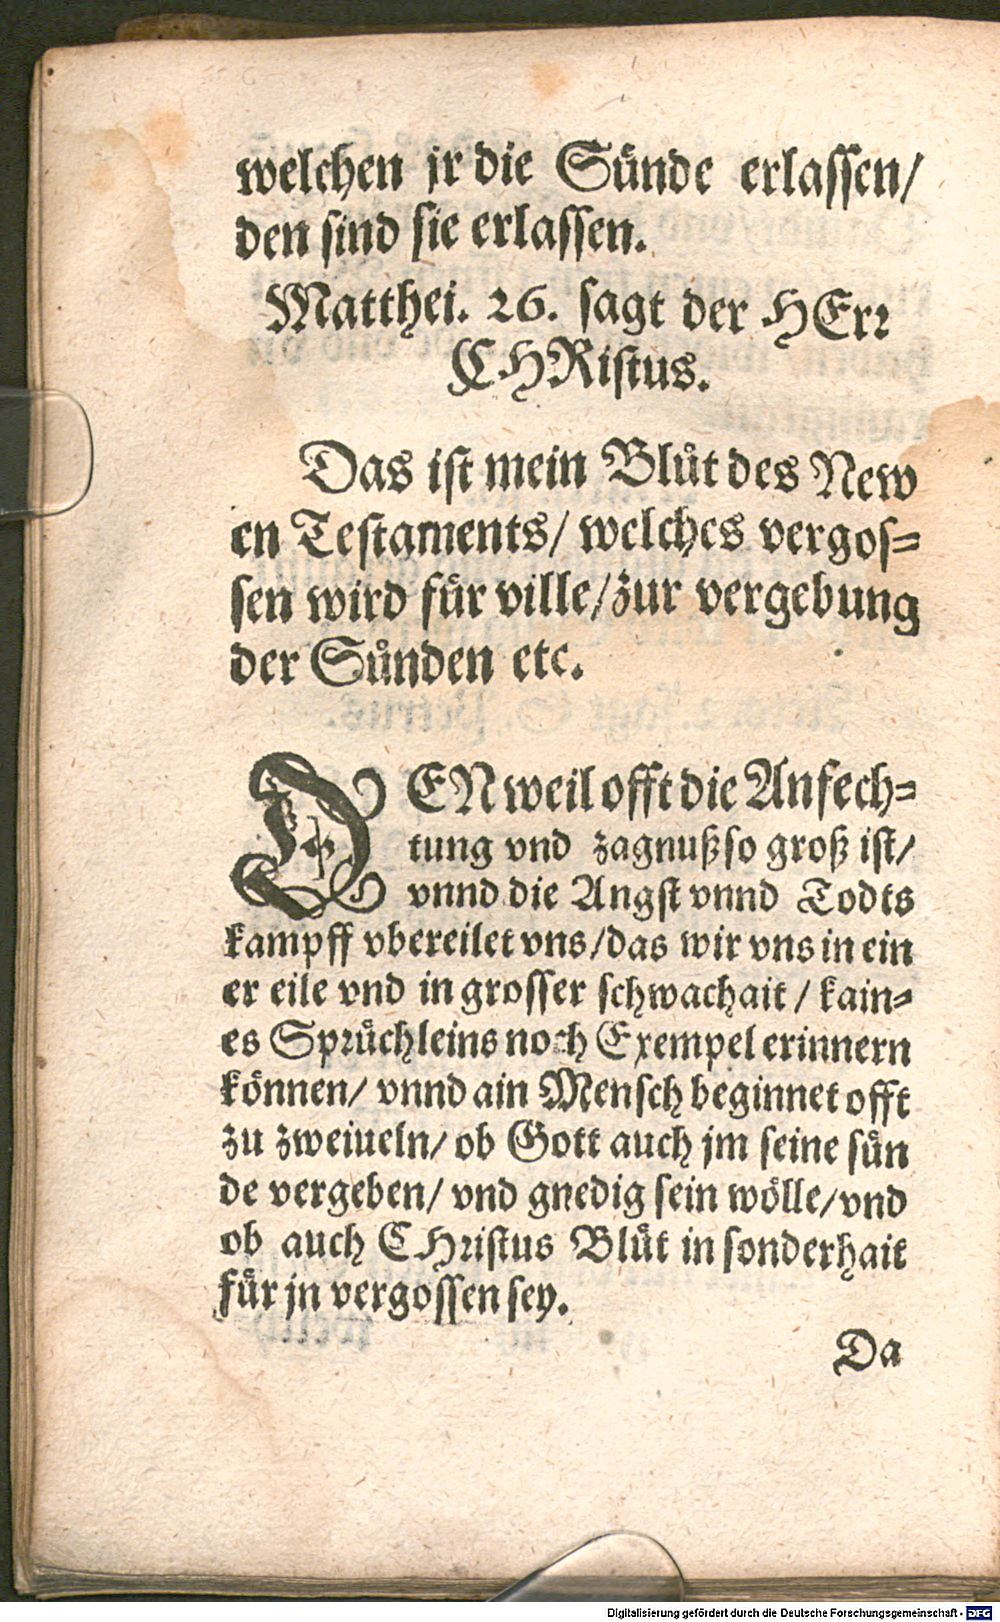 welchen jr die Sünde erlassen/
den sind sie erlassen.
Matthei. 26. sagt der HErr
CHRistus.
Das ist mein Blůt des New
en Testaments/ welches vergos=
sen wird fůr ville/zur vergebung
der Sůnden etc.
DEN weil offt die Anfech=
tung vnd zagnuß so groß ist/
vnnd die Angst vnnd Todts
kampff vbereilet vns/das wir vns in ein
er eile vnd in grosser schwachait / kain=
es Sprůchleins noch Exempel erinnern
können/ vnnd ain Mensch beginnet offt
zu zweiueln/ ob Gott auch jm seine sůn
de vergeben/ vnd gnedig sein wölle/vnd
ob auch CHristus Blůt in sonderhait
fůr jn vergossen sey.
Da
Digitalisierung gefördert durch die Deutsche Forschungsgemeinschaft - DFG